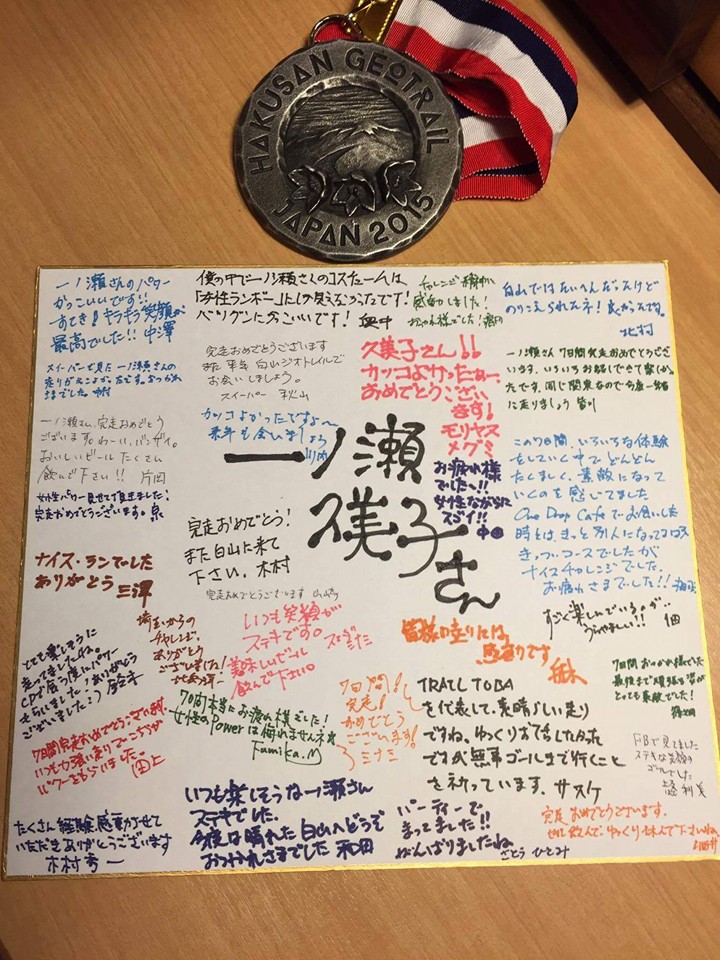 HAKUSAN GEOTRAIL
JAPAN 2015
一ノ瀬さんのパワー
かっこいいです!!
すてき!キラキラ笑顔が
最高でした!! 中澤
僕の中で一ノ瀬さんのコスチュームは、
「女性ランボー」にしか見えなかったです!
バツグンにかっこいいです! 奥中
感動しました!
白山ではたいへんだったけど
のりこえられたネ!
北村
スイーパーで見た一ノ瀬さんの
完走おめでとうございます
また来年白山ジオトレイルで
お会いしましょう。
スイーパー 秋山
久美子さん!!
カッコよかったねー、
おめでとうござい
ます!
モリヤス
メグミ
一ノ瀬さん 7日間完走おめでとうござ
います。いろいろお話しできて楽しかっ
たです。同じ関東なので今度一緒
に走りましょう 皆川
一ノ瀬さん、完走おめでとう
ございます。わーい、バンザイ。
おいしいビールたくさん
飲んで下さい!! 片岡
カッコよかったですよ〜
来年も会いましょう
一ノ瀬
久美子さん
お疲れ様
でした〜!!
女性ながらに
スゴイ!!
中田
この7日間、いろいろな体験
をしていく中で、どんどん
たくましく、素敵になって
いくのを感じてました
One Drop Cafeでお会いした
時とは、きっと別人になってるはず
きっつ〜コースでしたが
ナイスチャレンジでした。
お疲れさまでした!!
女性パワー見せて頂きました!
完走おめでとうございます。泉
完走おめでとう!
また白山に来て
下さい。木村
完走おめでとうございます
ナイス・ランでした
ありがとう 三澤
すごく楽しんでいるのが、
うらやましい!!
埼玉からの
チャレンジ、
ありがとう
ございました!
いつも笑顔が
ステキです。
美味しいビール
飲んで下さい。
皆様の走りには、
感謝です
とても楽しそうに
走ってましたね。
CPで会う度にパワー
もらいました!ありがとう
ございました:) 鈴木
7日間おつかれ様でした
最後まで頑張る姿が
とても素敵でした!
7日間本当にお疲れ様でした!
女性のPowerは侮れませんネ
Fumika.M
7日間!
完走!
おめでとう
ございます!
ミナミ
TRAIL TOBA
を代表して、素晴らしい走り
ですね。ゆっくりお話したかった
ですが無事ゴールまで行くこと
をネガっています。サスケ
7日間完走おめでとうございます。
いつも力強い走りでこっちが
パワーをもらいました。
FBで見てました
ステキな笑顔の
ゴールでした
たくさん経験、感動させて
いただきありがとうございます
木村秀一
いつも楽しそうな一ノ瀬さん
ステキでした。
今度は晴れた白山へどうぞ
おつかれさまでした 和田
パーティーで
まってました!!
がんばりましたね
さとう ひとみ
完走おめでとうございます。